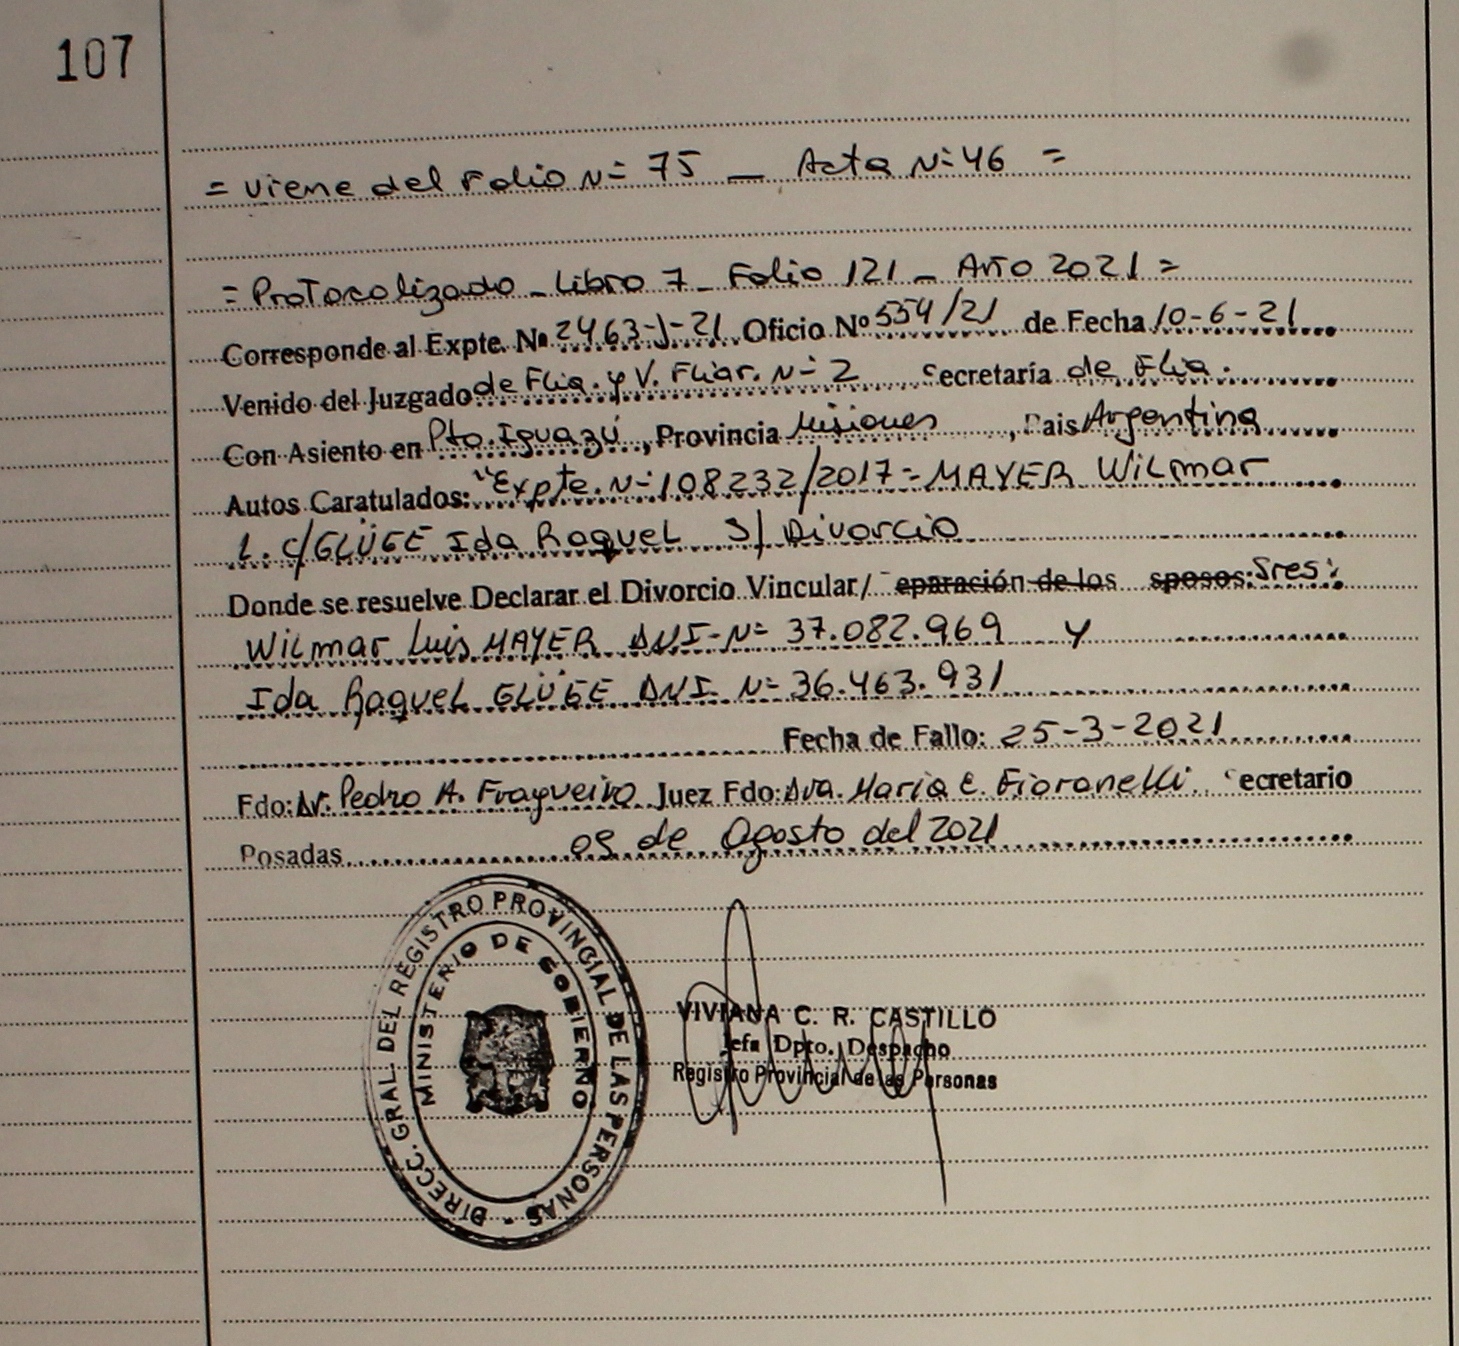 107
= viene del Folio N= 75 _ Acta N= 46 =
= Protocolizado _ Libro 7 _ Folio 121 _ Año 2021 =
Corresponde al Expte. Nº 2463-J-21 Oficio Nº 554/21 de Fecha 10-6-21
Venido del Juzgado de Flia. y V. Fliar. N= 2 ecretaría de Flia.
Con Asiento en Pto. Iguazú, Provincia Misiones, Pais Argentina
Autos Caratulados: "Expte. N= 108232/2017 = MAYER Wilmar
L. c/GLÜGE Ida Raquel S/ Divorcio
Donde se resuelve Declarar el Divorcio Vincular/ eparación de los sposos: Sres:
Wilmar Luis MAYER DNI-N= 37.082.969 y
Ida Raquel GLÜGE DNI. N= 36.463.931
Fecha de Fallo: 25-3-2021
Fdo: Dr. Pedro A. Fragueiro Juez Fdo: Dra. Maria E. Fioranelli. ecretario
Posadas 09 de Agosto del 2021
DIRECC. GRAL. DEL REGISTRO PROVINCIAL DE LAS PERSONAS -
MINISTERIO DE GOBIERNO
VIVIANA C. R. CASTILLO
Jefa Dpto. Despacho
Registro Provincial de las Personas